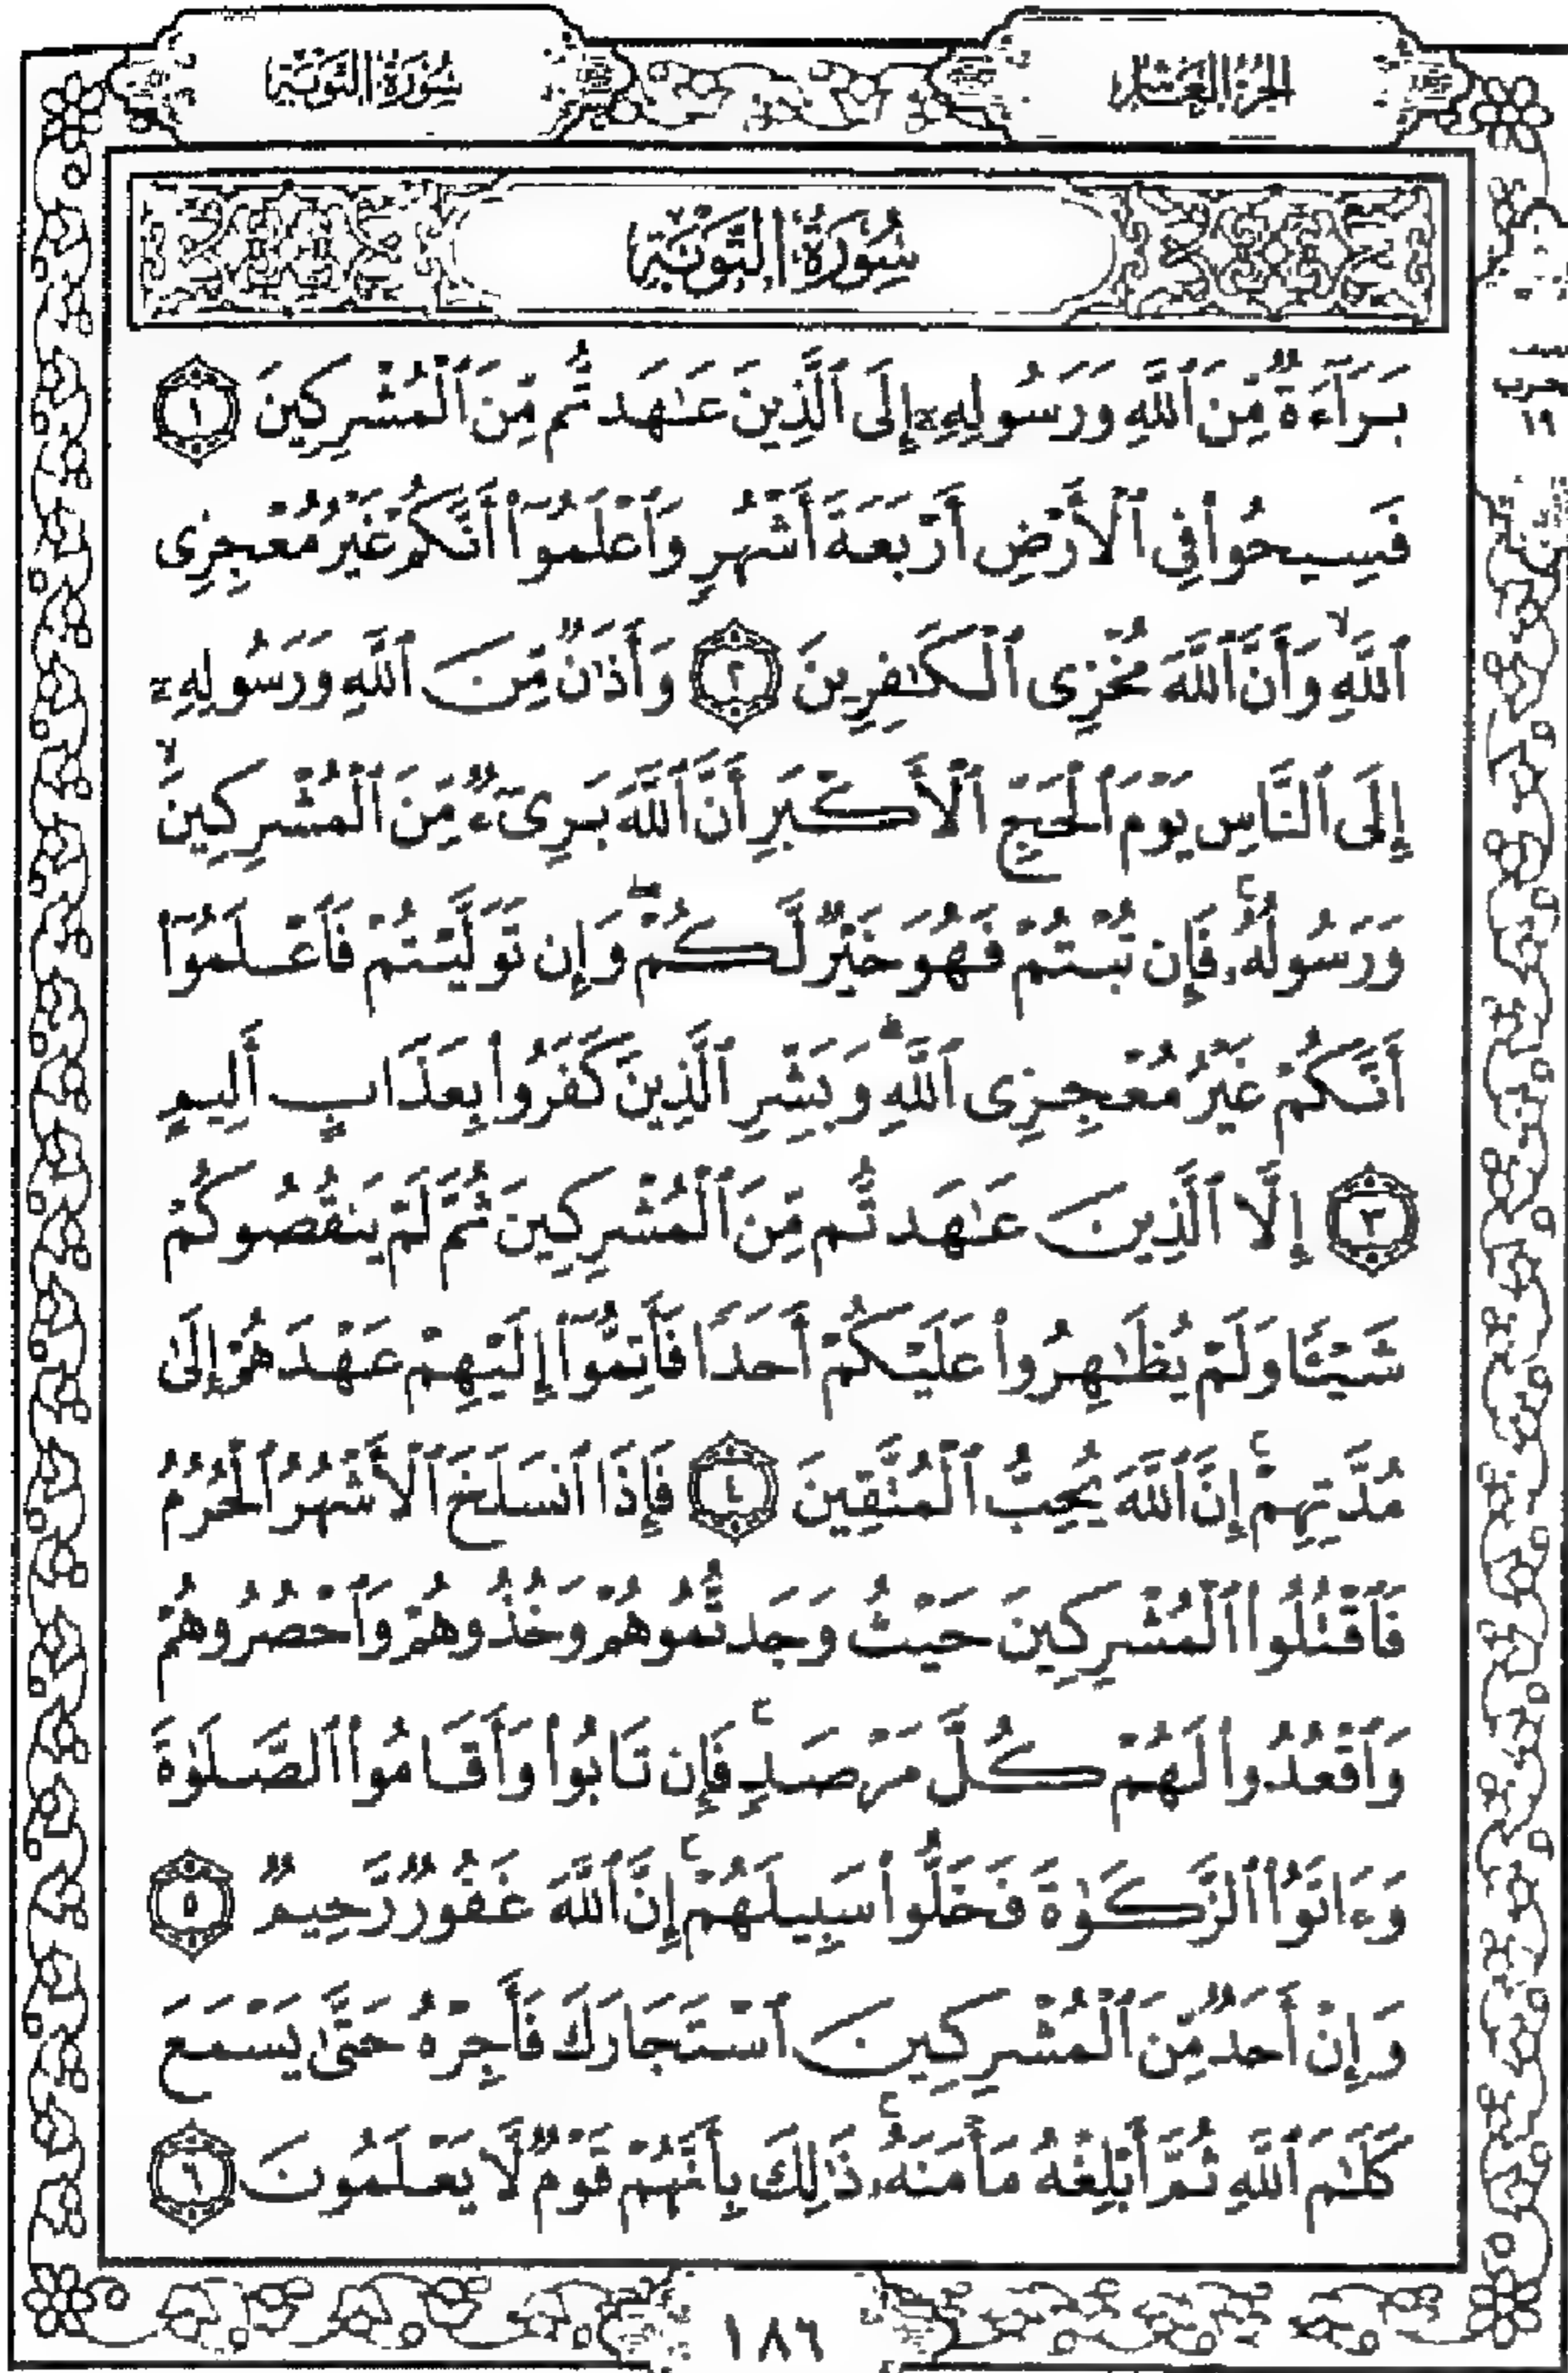 الجزء العاشر
سورة التوبة
سُورَةُ التَّوْبَةِ
بَرَآءَةٌ مِّنَ ٱللَّهِ وَرَسُولِهِۦٓ إِلَى ٱلَّذِينَ عَـٰهَدتُّم مِّنَ ٱلْمُشْرِكِينَ ١
فَسِيحُوا۟ فِى ٱلْأَرْضِ أَرْبَعَةَ أَشْهُرٍ وَٱعْلَمُوٓا۟ أَنَّكُمْ غَيْرُ مُعْجِزِى
ٱللَّهِ ۙ وَأَنَّ ٱللَّهَ مُخْزِى ٱلْكَـٰفِرِينَ ٢ وَأَذَٰنٌ مِّنَ ٱللَّهِ وَرَسُولِهِۦٓ
إِلَى ٱلنَّاسِ يَوْمَ ٱلْحَجِّ ٱلْأَكْبَرِ أَنَّ ٱللَّهَ بَرِىٓءٌ مِّنَ ٱلْمُشْرِكِينَ ۙ
وَرَسُولُهُۥ ۚ فَإِن تُبْتُمْ فَهُوَ خَيْرٌ لَّكُمْ ۖ وَإِن تَوَلَّيْتُمْ فَٱعْلَمُوٓا۟
أَنَّكُمْ غَيْرُ مُعْجِزِى ٱللَّهِ ۗ وَبَشِّرِ ٱلَّذِينَ كَفَرُوا۟ بِعَذَابٍ أَلِيمٍ
٣ إِلَّا ٱلَّذِينَ عَـٰهَدتُّم مِّنَ ٱلْمُشْرِكِينَ ثُمَّ لَمْ يَنقُصُوكُمْ
شَيْـًٔا وَلَمْ يُظَـٰهِرُوا۟ عَلَيْكُمْ أَحَدًا فَأَتِمُّوٓا۟ إِلَيْهِمْ عَهْدَهُمْ إِلَىٰ
مُدَّتِهِمْ ۚ إِنَّ ٱللَّهَ يُحِبُّ ٱلْمُتَّقِينَ ٤ فَإِذَا ٱنسَلَخَ ٱلْأَشْهُرُ ٱلْحُرُمُ
فَٱقْتُلُوا۟ ٱلْمُشْرِكِينَ حَيْثُ وَجَدتُّمُوهُمْ وَخُذُوهُمْ وَٱحْصُرُوهُمْ
وَٱقْعُدُوا۟ لَهُمْ كُلَّ مَرْصَدٍ ۚ فَإِن تَابُوا۟ وَأَقَامُوا۟ ٱلصَّلَوٰةَ
وَءَاتَوُا۟ ٱلزَّكَوٰةَ فَخَلُّوا۟ سَبِيلَهُمْ ۚ إِنَّ ٱللَّهَ غَفُورٌ رَّحِيمٌ ٥
وَإِنْ أَحَدٌ مِّنَ ٱلْمُشْرِكِينَ ٱسْتَجَارَكَ فَأَجِرْهُ حَتَّىٰ يَسْمَعَ
كَلَـٰمَ ٱللَّهِ ثُمَّ أَبْلِغْهُ مَأْمَنَهُۥ ۚ ذَٰلِكَ بِأَنَّهُمْ قَوْمٌ لَّا يَعْلَمُونَ ٦
حزب
١٩
١٨٦